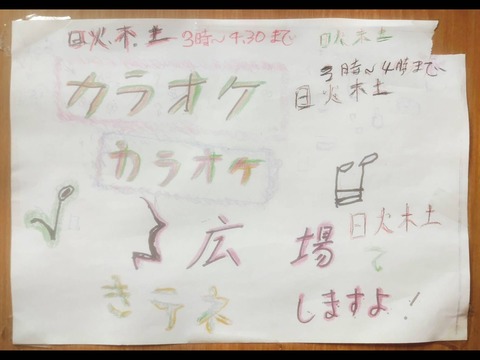 日火.木.土 3時〜4.30まで
日火木土
3時〜4時まで
日火木土
カラオケ
カラオケ
日火木土
広場で
きテネ
しますよ!